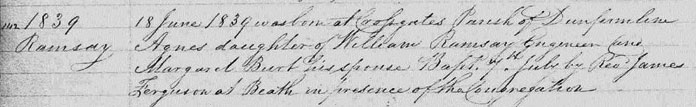 1839 18 June 1839 was born at Crossgates Parish of Dunfermline
Ramsay Agnes daughter of William Ramsay Engineer and
Margaret Burt his spouse Bapt. 7th July by Revd James
Ferguson at Beath in presence of the Congregation